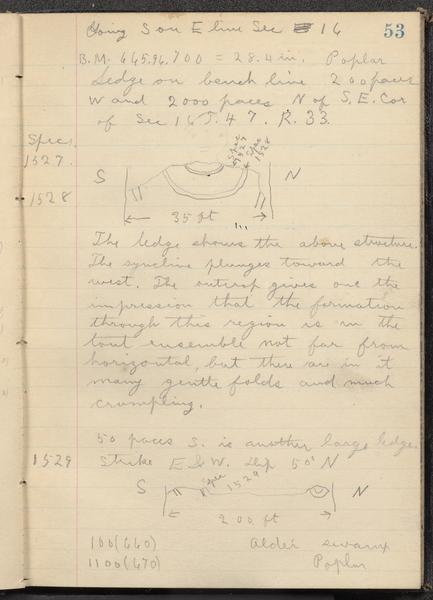 53
Going S on E line Sec 16
B.M. 665.96.700 = 28.4 in. Poplar
Ledge on bench line 200 paces
W and 2000 paces N of S.E. Cor
of Sec 16 T. 47. R. 33.
Spec.
1527.
1528
Spec 1527
Spec 1528
S N
35 ft
The ledge shows the above structure.
The syncline plunges toward the
west. The outcrop gives one the
impression that the formation
through this region is in the
tout ensemble not far from
horizontal, but there are in it
many gentle folds and much
crumpling.
50 paces S. is another large ledge.
1529 Strike E & W. Dip 50° N
S Spec 1529 N
200 ft
100 (660) Alder swamp
1100 (670) Poplar